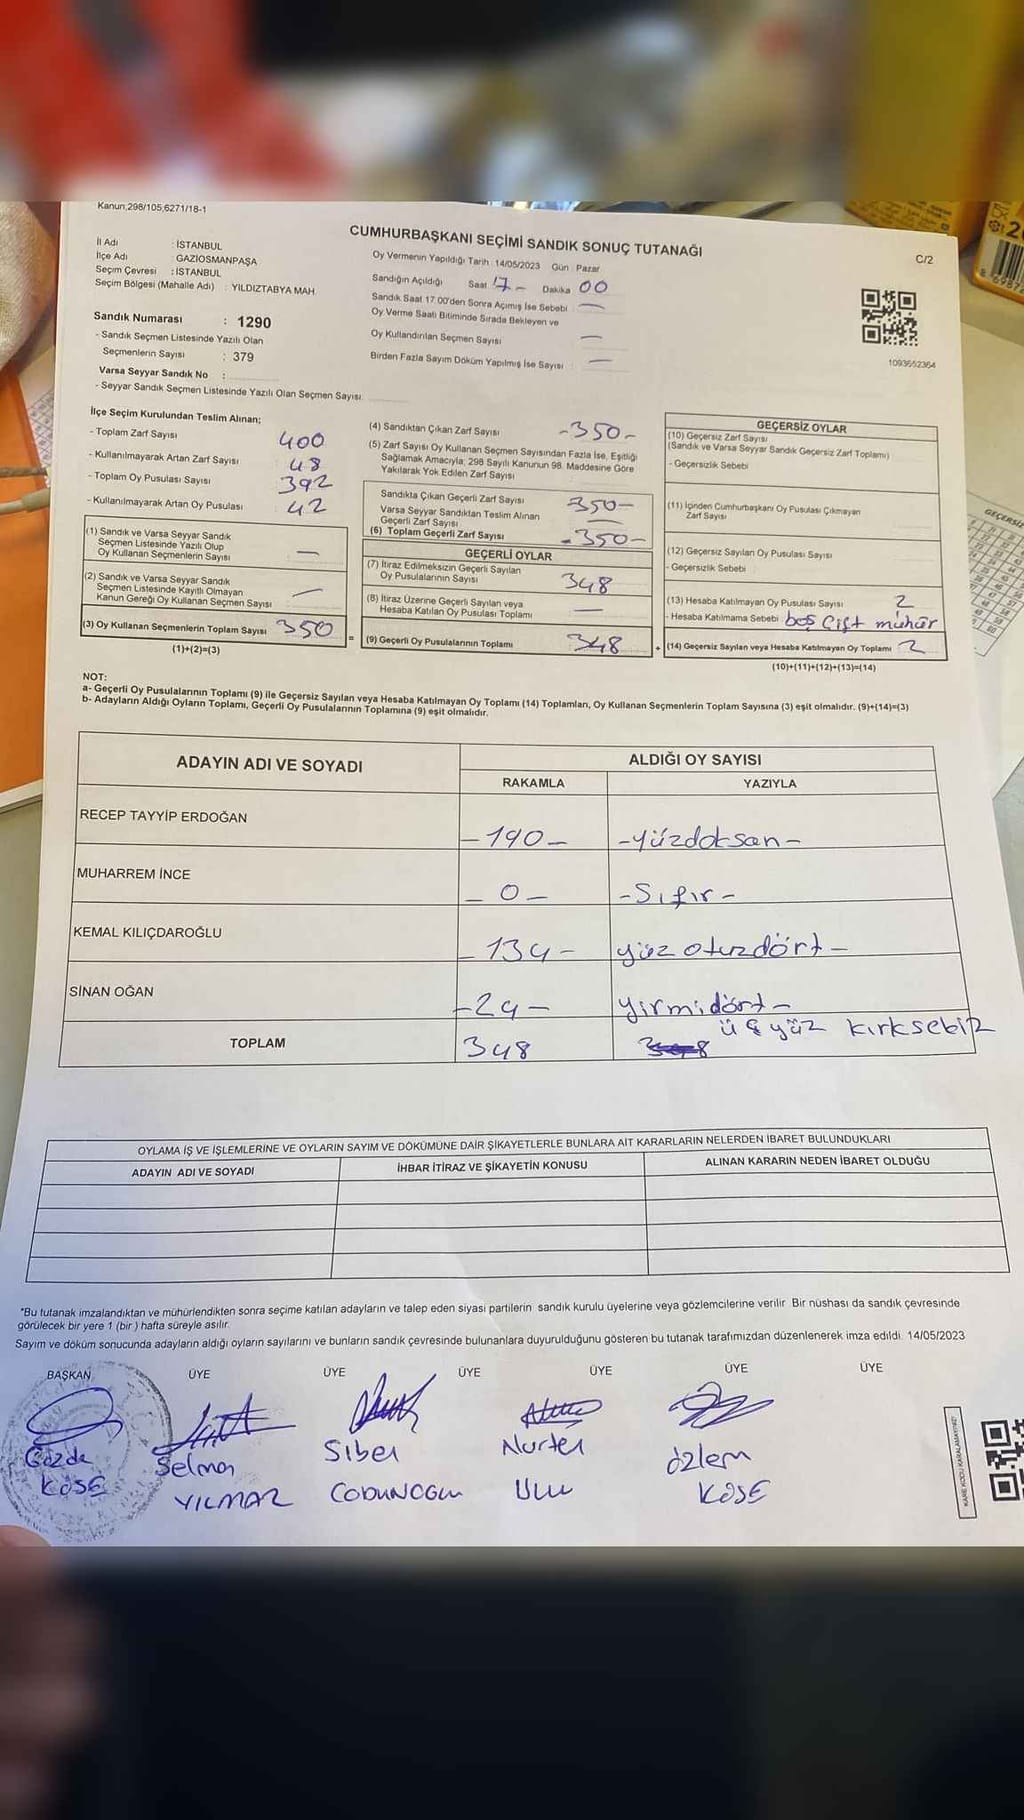 Kanun,298/105,6271/18-1
CUMHURBAŞKANI SEÇİMİ SANDIK SONUÇ TUTANAĞI
C/2
İl Adı : İSTANBUL
İlçe Adı : GAZİOSMANPAŞA
Seçim Çevresi : İSTANBUL
Seçim Bölgesi (Mahalle Adı) : YILDIZTABYA MAH.
Sandık Numarası : 1290
- Sandık Seçmen Listesinde Yazılı Olan
Seçmenlerin Sayısı : 379
Varsa Seyyar Sandık No :
- Seyyar Sandık Seçmen Listesinde Yazılı Olan Seçmen Sayısı:
Oy Vermenin Yapıldığı Tarih :14/05/2023 Gün : Pazar
Sandığın Açıldığı Saat 17- Dakika 00
Sandık Saat 17.00'den Sonra Açımış İse Sebebi : —
Oy Verme Saati Bitiminde Sırada Bekleyen ve
Oy Kullandırılan Seçmen Sayısı —
Birden Fazla Sayım Döküm Yapılmış İse Sayısı : —
1093652364
İlçe Seçim Kurulundan Teslim Alınan;
- Toplam Zarf Sayısı 400
- Kullanılmayarak Artan Zarf Sayısı 48
- Toplam Oy Pusulası Sayısı 392
- Kullanılmayarak Artan Oy Pusulası 42
(1) Sandık ve Varsa Seyyar Sandık
Seçmen Listesinde Yazılı Olup
Oy Kullanan Seçmenlerin Sayısı —
(2) Sandık ve Varsa Seyyar Sandık
Seçmen Listesinde Kayıtlı Olmayan
Kanun Gereği Oy Kullanan Seçmen Sayısı —
(3) Oy Kullanan Seçmenlerin Toplam Sayısı 350
(1)+(2)=(3)
(4) Sandıktan Çıkan Zarf Sayısı -350-
(5) Zarf Sayısı Oy Kullanan Seçmen Sayısından Fazla İse, Eşitliği
Sağlamak Amacıyla, 298 Sayılı Kanunun 98. Maddesine Göre
Yakılarak Yok Edilen Zarf Sayısı
Sandıkta Çıkan Geçerli Zarf Sayısı 350-
Varsa Seyyar Sandıktan Teslim Alınan
Geçerli Zarf Sayısı —
(6) Toplam Geçerli Zarf Sayısı -350-
GEÇERLİ OYLAR
(7) İtiraz Edilmeksizin Geçerli Sayılan
Oy Pusulalarının Sayısı 348
(8) İtiraz Üzerine Geçerli Sayılan veya
Hesaba Katılan Oy Pusulası Toplamı —
= (9) Geçerli Oy Pusulalarının Toplamı 348
GEÇERSİZ OYLAR
(10) Geçersiz Zarf Sayısı
(Sandık ve Varsa Seyyar Sandık Geçersiz Zarf Toplamı)
- Geçersizlik Sebebi
(11) İçinden Cumhurbaşkanı Oy Pusulası Çıkmayan
Zarf Sayısı
(12) Geçersiz Sayılan Oy Pusulası Sayısı
- Geçersizlik Sebebi :
(13) Hesaba Katılmayan Oy Pusulası Sayısı 2
- Hesaba Katılmama Sebebi : boş çift mühür
+ (14) Geçersiz Sayılan veya Hesaba Katılmayan Oy Toplamı 2
(10)+(11)+(12)+(13)=(14)
NOT:
a- Geçerli Oy Pusulalarının Toplamı (9) ile Geçersiz Sayılan veya Hesaba Katılmayan Oy Toplamı (14) Toplamları, Oy Kullanan Seçmenlerin Toplam Sayısına (3) eşit olmalıdır. (9)+(14)=(3)
b- Adayların Aldığı Oyların Toplamı, Geçerli Oy Pusulalarının Toplamına (9) eşit olmalıdır.
ADAYIN ADI VE SOYADI ALDIĞI OY SAYISI
RAKAMLA YAZIYLA
RECEP TAYYİP ERDOĞAN -190- -yüzdoksan-
MUHARREM İNCE -0- -Sıfır-
KEMAL KILIÇDAROĞLU -134- yüz otuzdört-
SİNAN OĞAN -24- yirmidört-
TOPLAM 348 üçyüz kırksekiz
OYLAMA İŞ VE İŞLEMLERİNE VE OYLARIN SAYIM VE DÖKÜMÜNE DAİR ŞİKAYETLERLE BUNLARA AİT KARARLARIN NELERDEN İBARET BULUNDUKLARI
ADAYIN ADI VE SOYADI İHBAR İTİRAZ VE ŞİKAYETİN KONUSU ALINAN KARARIN NEDEN İBARET OLDUĞU
*Bu tutanak imzalandıktan ve mühürlendikten sonra seçime katılan adayların ve talep eden siyasi partilerin sandık kurulu üyelerine veya gözlemcilerine verilir. Bir nüshası da sandık çevresinde
görülecek bir yere 1 (bir ) hafta süreyle asılır.
Sayım ve döküm sonucunda adayların aldığı oyların sayılarını ve bunların sandık çevresinde bulunanlara duyurulduğunu gösteren bu tutanak tarafımızdan düzenlenerek imza edildi. 14/05/2023
BAŞKAN ÜYE ÜYE ÜYE ÜYE ÜYE ÜYE
Gözde Selman Siber Nurten Özlem
KÖSE YILMAZ Ulu KÖSE
KARE KODU KARALAMAYINIZ!
GEÇERSİZ